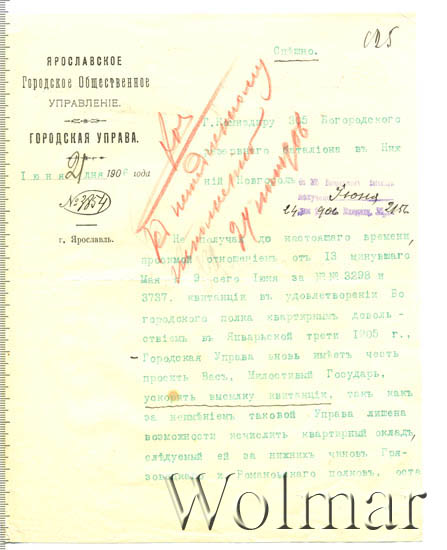 Спѣшно.
ЯРОСЛАВСКОЕ
Городское Общественное
УПРАВЛЕНІЕ.
ГОРОДСКАЯ УПРАВА.
Іюня 21 дня 1906 года
№ 7854
г. Ярославль.
Г. Командиру 305 Богородского
резервного баталіона въ Ниж
ній Новгородъ
Іюня
24 906 2156
Къ немедленному
исполненію
24 іюня 906
Не получая до настоящаго времени,
просимой отношеніемъ отъ 13 минувшаго
Мая и 9 сего Іюня за №№ 3298 и
3737. квитанціи въ удовлетвореніи Бо
городского полка квартирнымъ доволь-
ствіемъ въ Январьской трети 1905 г.,
Городская Управа вновь имѣетъ честь
просить Васъ, Милостивый Государь,
ускорить высылку квитанціи, такъ какъ
за неимѣніемъ таковой Управа лишена
возможности исчислить квартирный окладъ,
слѣдуемый ей за нижнихъ чиновъ Гря-
зовецкаго и Романовскаго полковъ, оста
Wolmar